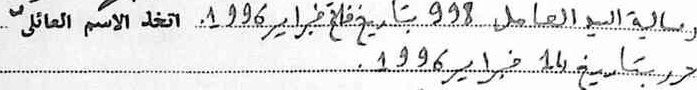 رسالة السيد العامل 998 بتاريخ فاتح فبراير 1996. اتخذ الاسم العائلي
حرر بتاريخ 14 فبراير 1996.